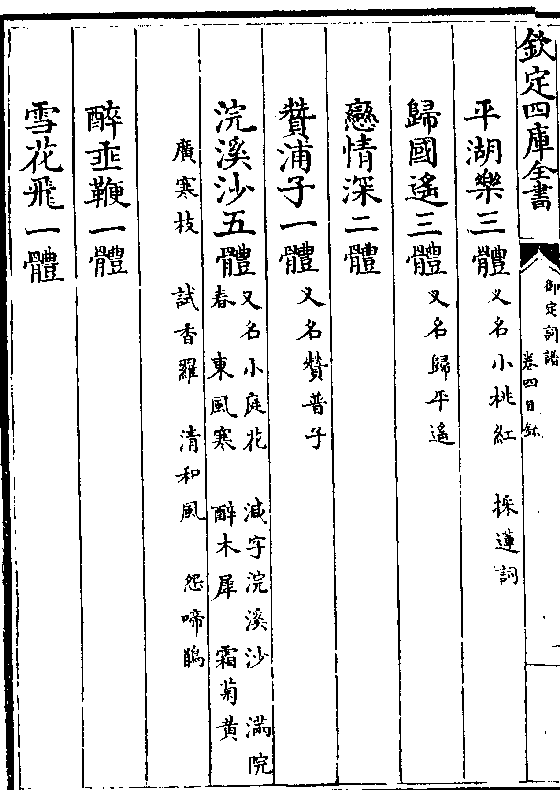 欽定四庫全書
御定詞譜
卷四目錄
平湖樂三體 又名小桃紅 採蓮詞
歸國遙三體 又名歸平遙
戀情深二體
贊浦子一體 又名贊普子
浣溪沙五體 又名小庭花 減字浣溪沙 滿院
春 東風寒 醉木犀 霜菊黃
廣寒枝 試香羅 清和風 怨啼鵑
醉垂鞭一體
雪花飛一體